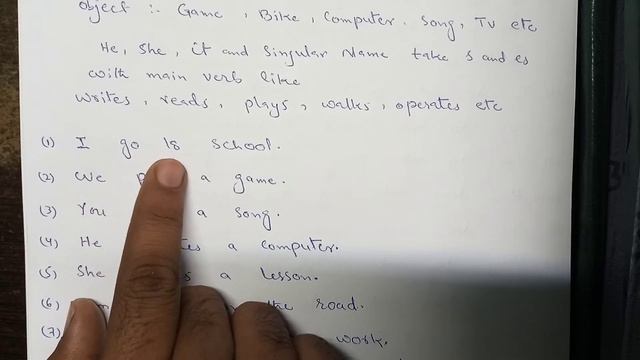 object :- Game, Bike, Computer. Song, TV etc
He, She, it and Singular Name take s and es
with main verb like
writes, reads, plays, walks, operates etc
(1) I go to school.
(2) We a game.
(3) You a song.
(4) He a computer.
(5) She a lesson.
(6) the road.
(7) work.